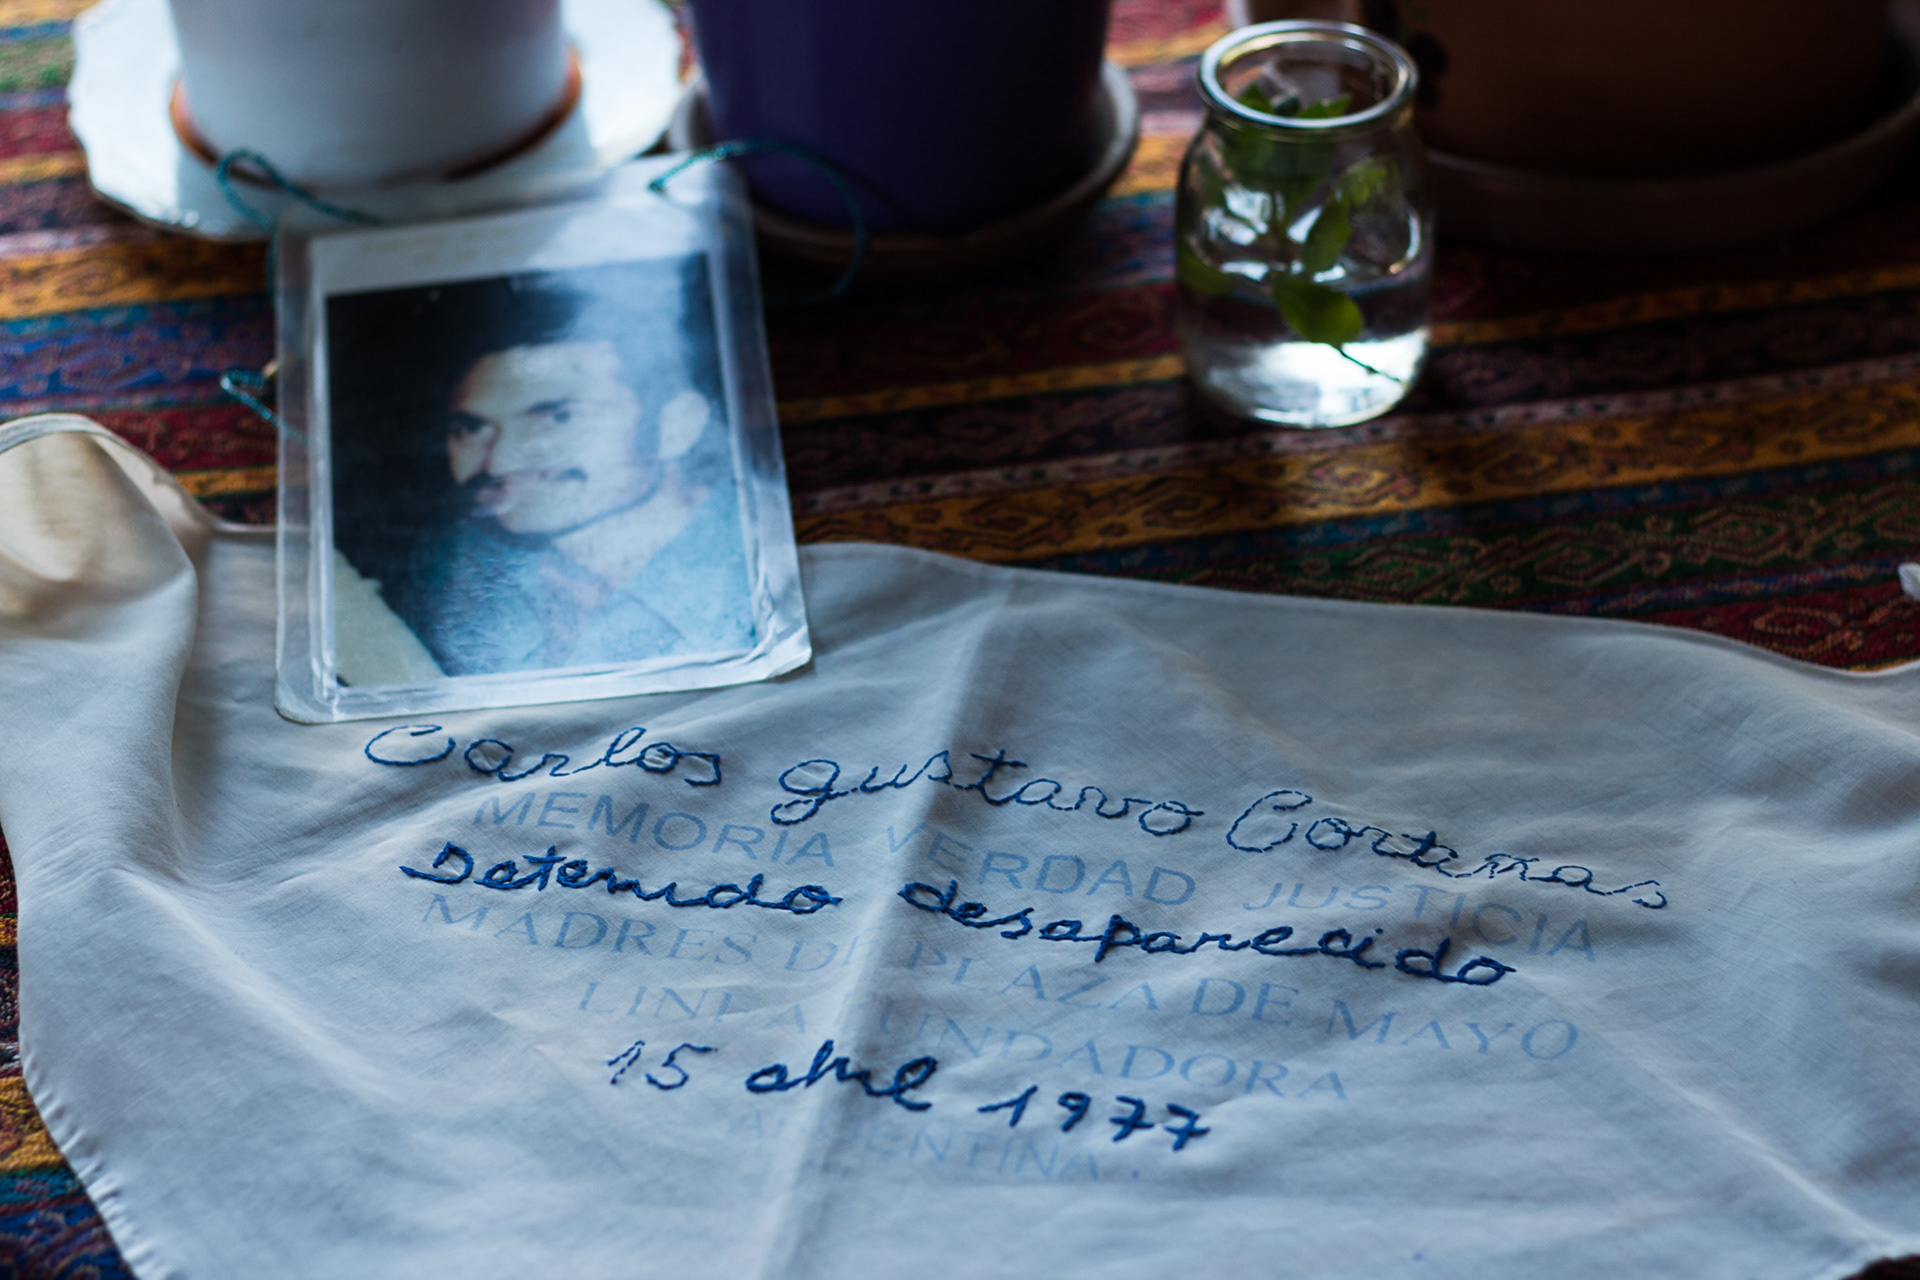 Carlos gustavo Cortiñas
MEMORIA VERDAD JUSTICIA
Detenido desaparecido
MADRES DE PLAZA DE MAYO
LINEA FUNDADORA
15 abril 1977
ARGENTINA.